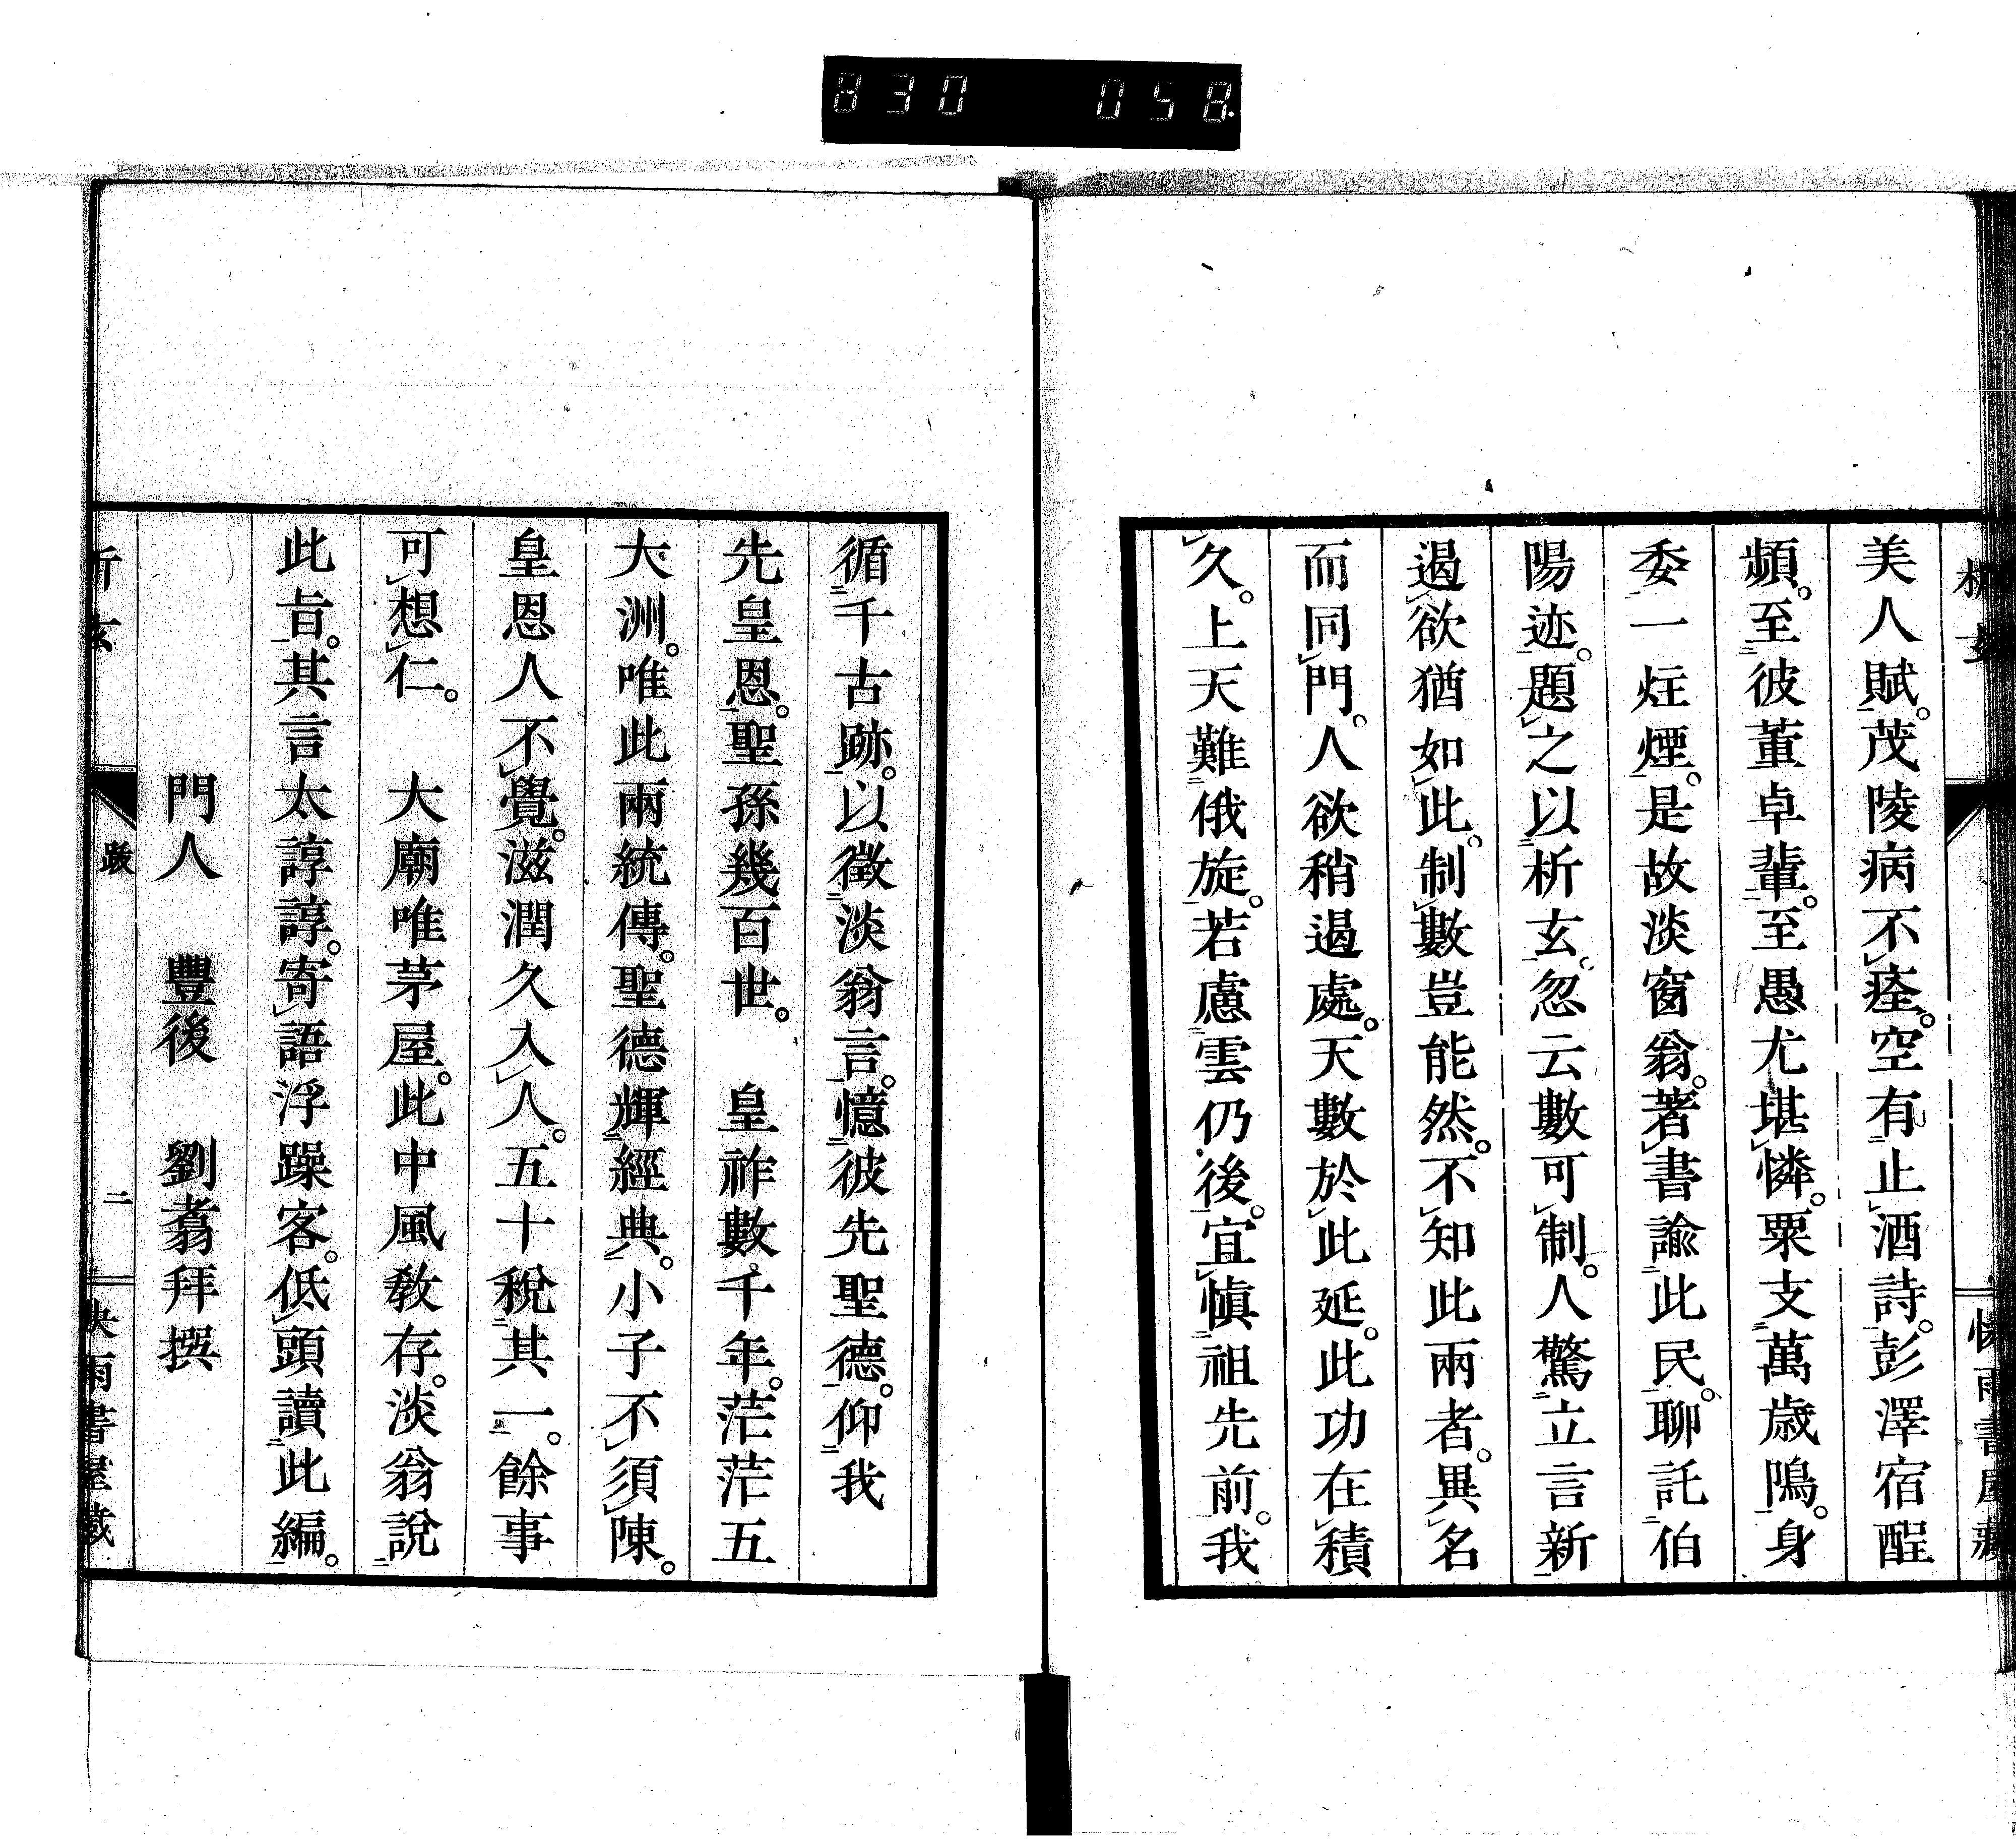 830 058
美人賦。茂陵病不痊。空有止酒詩。彭澤宿酲
頻。至彼董卓輩。至愚尤堪憐。粟支萬歲隖。身
委一炷煙。是故淡窗翁。著書諭此民。聊託伯
陽迹。題之以析玄。忽云數可制。人驚立言新
遏欲猶如此。制數豈能然。不知此兩者。異名
而同門。人欲稍遏處。天數於此延。此功在積
久。上天難俄旋。若慮雲仍後。宜愼祖先前。我
循千古跡。以徵淡翁言。憶彼先聖德。仰我
先皇恩。聖孫幾百世。 皇祚數千年。茫茫五
大洲。唯此兩統傳。聖德輝經典。小子不須陳。
皇恩人不覺。滋潤久入人。五十稅其一。餘事
可想仁。 大廟唯茅屋。此中風敎存。淡翁說
此旨。其言太諄諄。寄語浮躁客。低頭讀此編。
門人 豐後 劉翥拜撰
析玄 跋 二 快雨書屋藏